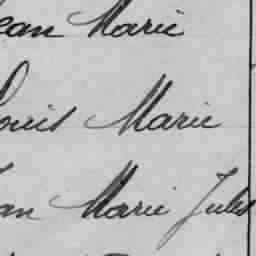 Jean Marie
Louis Marie
Jean Marie Jules